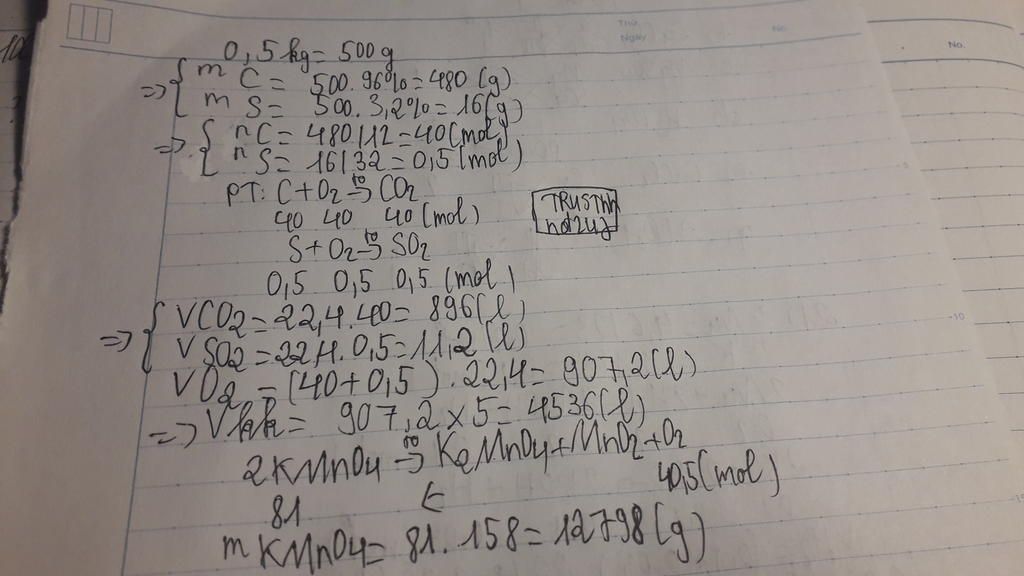 Thứ
Ngày
No.
No.
0,5 kg = 500 g
=> { m C = 500.96% = 480 (g)
m S = 500.3,2% = 16 (g)
=> { n C = 480/12 = 40 (mol)
n S = 16/32 = 0,5 (mol)
PT: C + O2 to→ CO2
40 40 40 (mol)
TRUSTnh
nd2ug
S + O2 to→ SO2
0,5 0,5 0,5 (mol)
=> { VCO2 = 22,4.40 = 896 (l)
V SO2 = 22,4.0,5 = 11,2 (l)
V O2 = (40+0,5).22,4 = 907,2 (l)
=> Vkk = 907,2 x 5 = 4536 (l)
2KMnO4 to→ K2MnO4 + MnO2 + O2
81 ← 40,5 (mol)
m KMnO4 = 81.158 = 12798 (g)